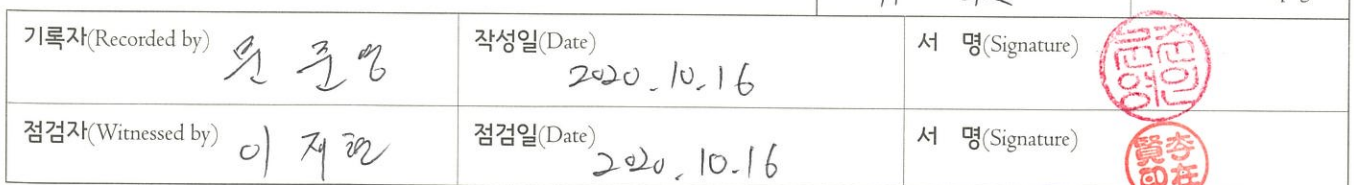 기록자(Recorded by) 윤준영 작성일(Date) 2020.10.16 서 명(Signature)
점검자(Witnessed by) 이재현 점검일(Date) 2020.10.16 서 명(Signature)